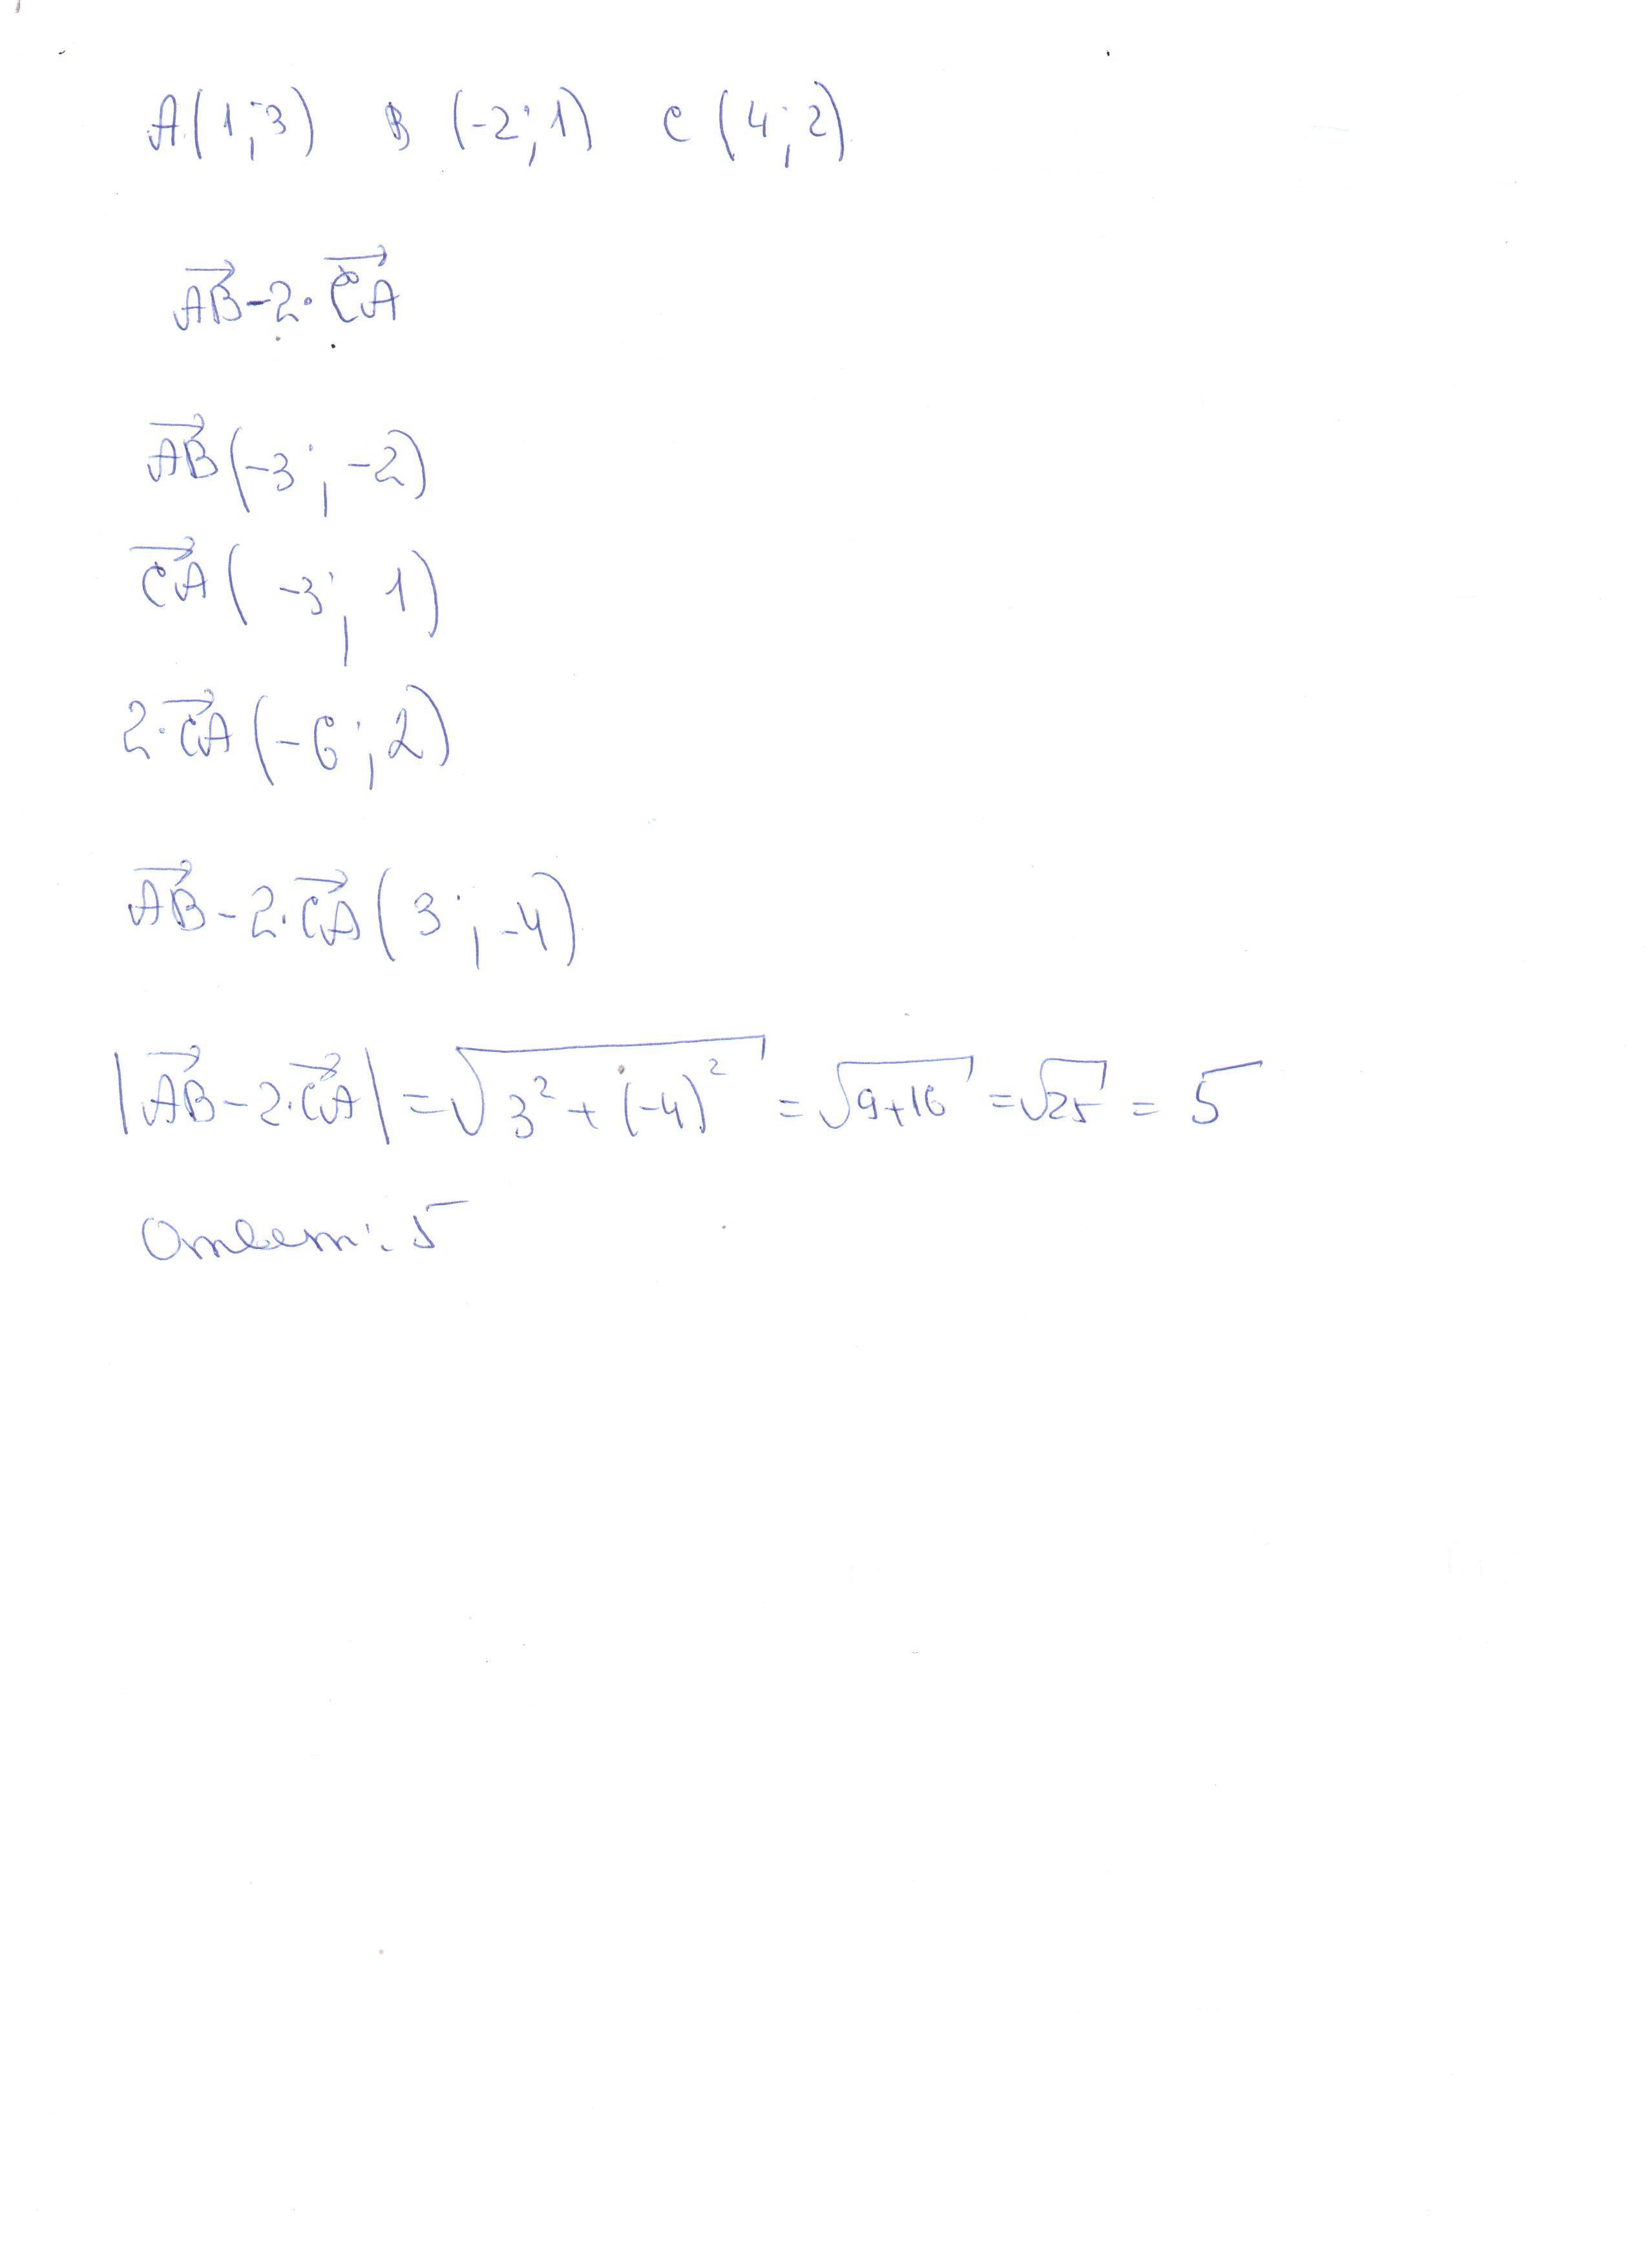 A(1;3) B(-2;1) C(4;2)
$\overrightarrow{AB}-2\cdot\overrightarrow{CA}$
$\overrightarrow{AB}(-3;-2)$
$\overrightarrow{CA}(-3;1)$
$2\cdot\overrightarrow{CA}(-6;2)$
$\overrightarrow{AB}-2\cdot\overrightarrow{CA}(3;-4)$
$|\overrightarrow{AB}-2\cdot\overrightarrow{CA}|=\sqrt{3^2+(-4)^2}=\sqrt{9+16}=\sqrt{25}=5$
Ответ: 5